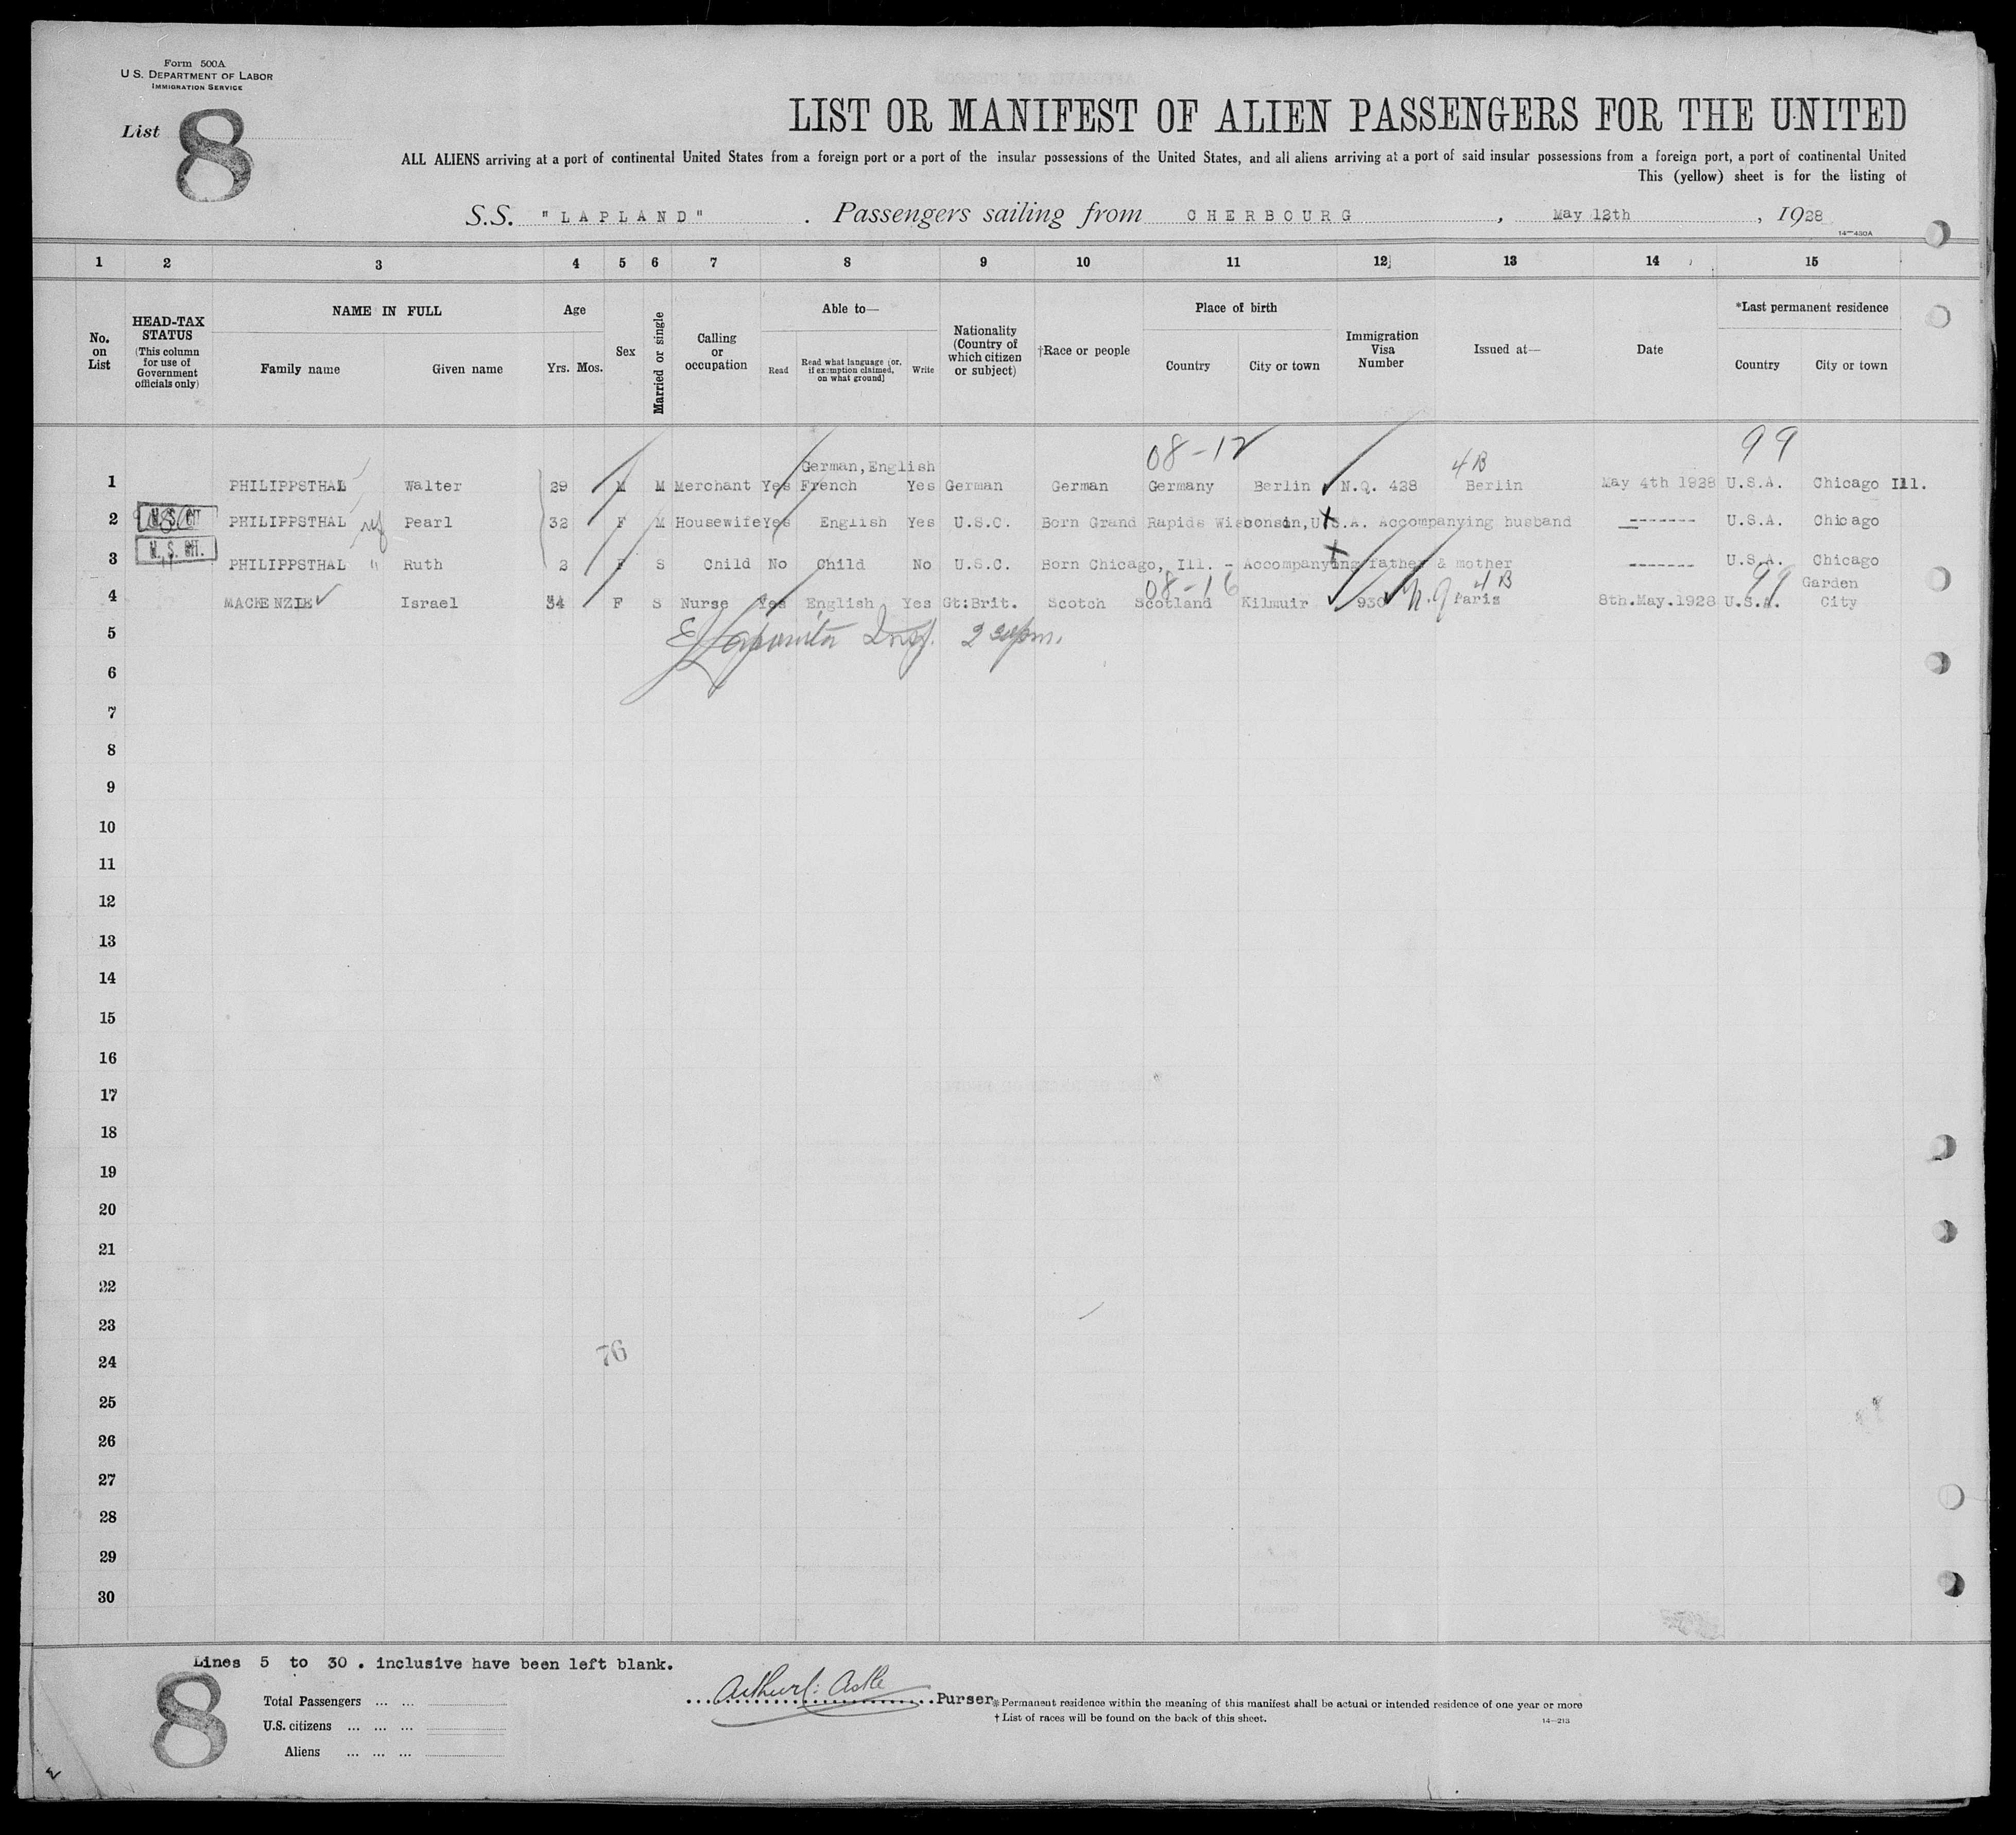 Form 500A
U S. DEPARTMENT OF LABOR
IMMIGRATION SERVICE
List 8
LIST OR MANIFEST OF ALIEN PASSENGERS FOR THE UNITED
ALL ALIENS arriving at a port of continental United States from a foreign port or a port of the insular possessions of the United States, and all aliens arriving at a port of said insular possessions from a foreign port, a port of continental United
This (yellow) sheet is for the listing of
S.S. "LAPLAND" . Passengers sailing from CHERBOURG , May 12th , 1928
14—430A
1 2 3 4 5 6 7 8 9 10 11 12 13 14 15
No. on List
HEAD-TAX STATUS (This column for use of Government officials only)
NAME IN FULL
Family name Given name
Age
Yrs. Mos.
Sex
Married or single
Calling or occupation
Able to—
Read Read what language (or, if exemption claimed, on what ground) Write
Nationality (Country of which citizen or subject)
†Race or people
Place of birth
Country City or town
Immigration Visa Number
Issued at—
Date
*Last permanent residence
Country City or town
08-12 99
German, English 4B
1 PHILIPPSTHAL Walter 29 M M Merchant Yes French Yes German German Germany Berlin N.Q. 428 Berlin May 4th 1928 U.S.A. Chicago Ill.
2 U.S. CIT PHILIPPSTHAL Pearl 32 F M Housewife Yes English Yes U.S.C. Born Grand Rapids Wisconsin, U.S.A. Accompanying husband ------- U.S.A. Chicago
3 PHILIPPSTHAL " Ruth 2 F S Child No Child No U.S.C. Born Chicago, Ill. - Accompanying father & mother ------- U.S.A. Chicago
08-16 4B 99 Garden
4 MACKENZIE Israel 34 F S Nurse Yes English Yes Gt:Brit. Scotch Scotland Kilmuir 930 N.Q Paris 8th.May.1928 U.S.A. City
5 Insp. 2 30 pm.
6
7
8
9
10
11
12
13
14
15
16
17
18
19
20
21
22
23
24
76
25
26
27
28
29
30
Lines 5 to 30 . inclusive have been left blank.
8
Total Passengers ... ...
U.S. citizens ... ... ...
Aliens ... ... ...
Arthur C. Astle Purser
*Permanent residence within the meaning of this manifest shall be actual or intended residence of one year or more
† List of races will be found on the back of this sheet.
14—213